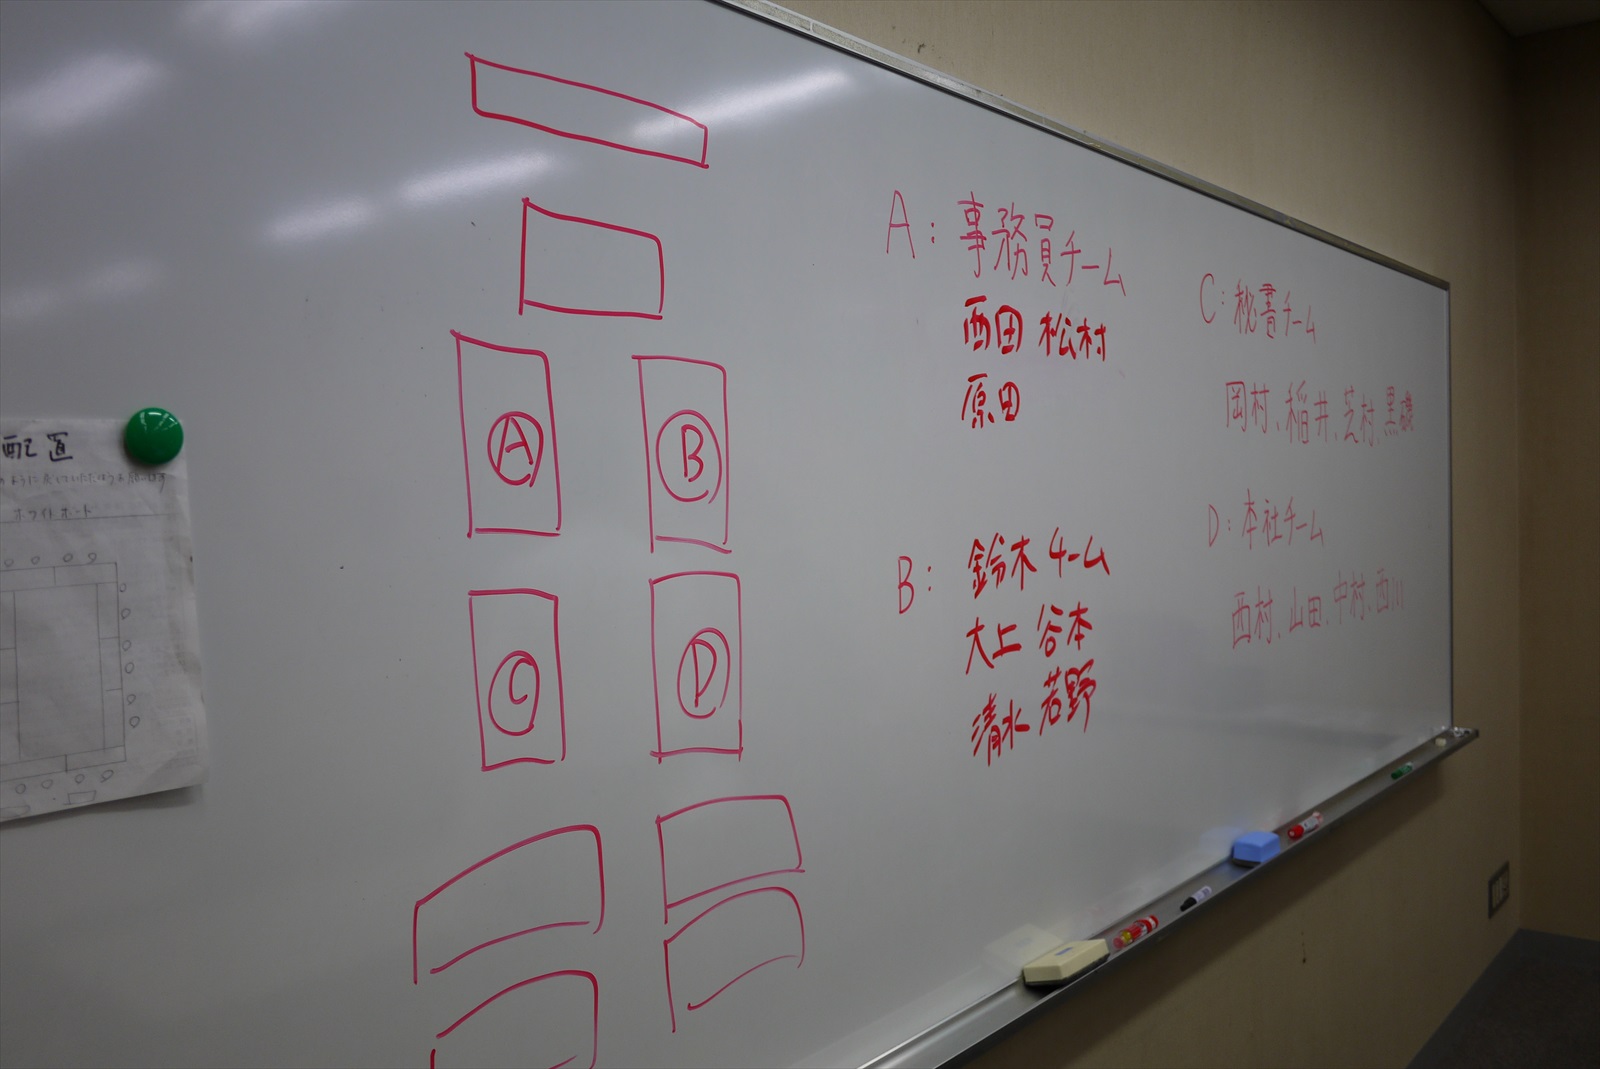 配置
ホワイトボート
A
B
C
D
A:事務員チーム
西田 松村
原田
B:鈴木チーム
大上 谷本
清水 若野
C:秘書チーム
岡村、稲井、芝村、黒磯
D:本社チーム
西村、山田、中村、西川